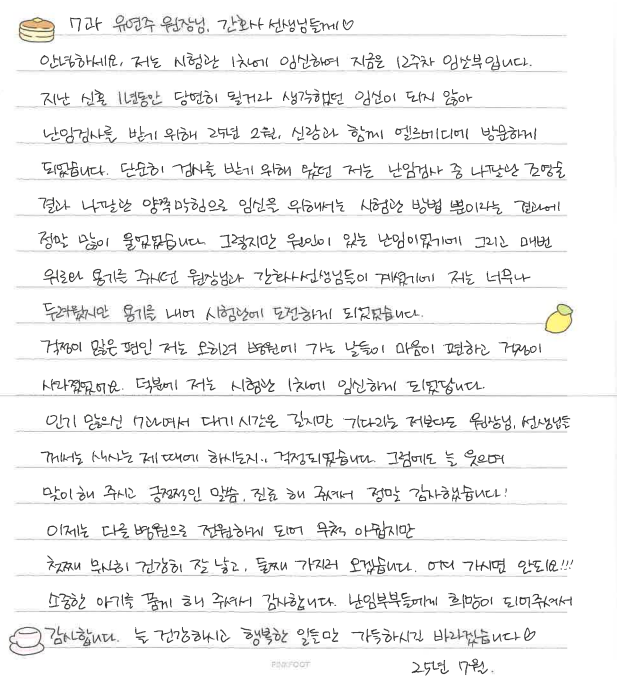 7과 유연주 원장님, 간호사 선생님들께♡
안녕하세요, 저는 시험관 1차에 임신하여 지금은 12주차 임산부입니다.
지난 신혼 1년동안 당연히 될거라 생각했던 임신이 되지 않아
난임검사를 받기 위해 25년 2월, 신랑과 함께 엘르메디에 방문하게
되었습니다. 단순히 검사를 받기 위해 왔던 저는 난임검사 중 나팔관 조영술
결과 나팔관 양쪽막힘으로 임신을 위해서는 시험관 방법 뿐이라는 결과에
정말 많이 울었었습니다. 그렇지만 원인이 있는 난임이였기에 그리고 매번
위로와 용기를 주시던 원장님과 간호사선생님들이 계셨기에 저는 너무나
두려웠지만 용기를 내어 시험관에 도전하게 되었었습니다.
걱정이 많은 편인 저는 오히려 병원에 가는 날들이 마음이 편하고 걱정이
사라졌었어요. 덕분에 저는 시험관 1차에 임신하게 되었답니다.
인기 많으신 7과여서 대기시간은 길지만 기다리는 저보다도 원장님, 선생님들
께서는 식사는 제 때에 하시는지.. 걱정되었습니다. 그럼에도 늘 웃으며
맞이해 주시고 긍정적인 말씀, 진료 해 주셔서 정말 감사했습니다!
이제는 다른병원으로 전원하게 되어 무척 아쉽지만
첫째 무사히 건강히 잘 낳고, 둘째 가지러 오겠습니다. 어디 가시면 안되요!!!
소중한 아기를 품게 해 주셔서 감사합니다. 난임부부들에게 희망이 되어주셔서
감사합니다. 늘 건강하시고 행복한 일들만 가득하시길 바라겠습니다♡
PINKFOOT
25년 7월.